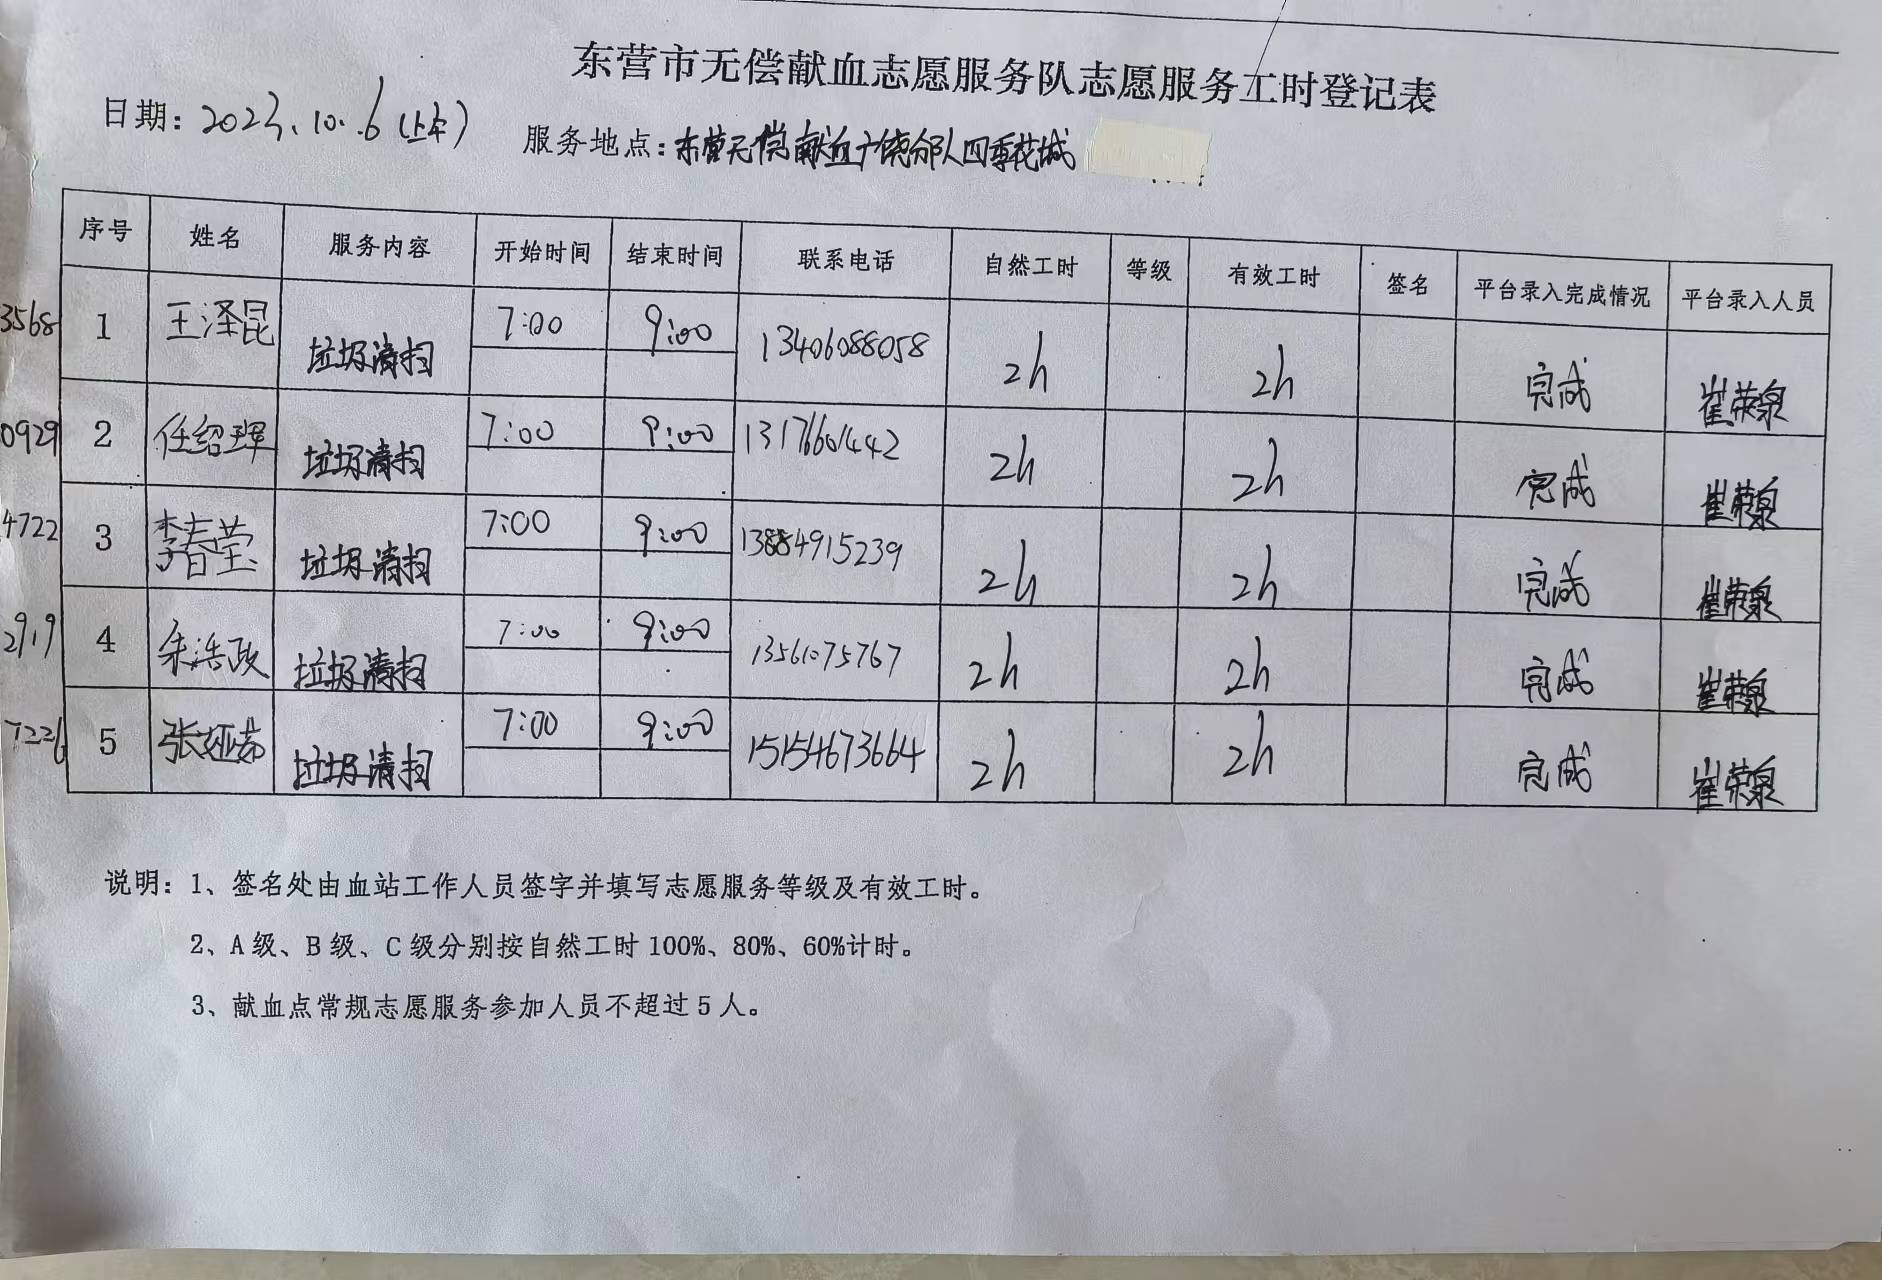 东营市无偿献血志愿服务队志愿服务工时登记表
日期：2023.10.6（上午）
服务地点：东营无偿献血广饶分队四季花城
序号 姓名 服务内容 开始时间 结束时间 联系电话 自然工时 等级 有效工时 签名 平台录入完成情况 平台录入人员
3568 1 王泽昆 垃圾清扫 7:00 9:00 13406088058 2h 2h 完成 崔荣泉
0929 2 任绍珲 垃圾清扫 7:00 9:00 13176601442 2h 2h 完成 崔荣泉
4722 3 李春莹 垃圾清扫 7:00 9:00 13884915239 2h 2h 完成 崔荣泉
2919 4 朱浩政 垃圾清扫 7:00 9:00 13561075767 2h 2h 完成 崔荣泉
7226 5 张娅茹 垃圾清扫 7:00 9:00 15154673664 2h 2h 完成 崔荣泉
说明：1、签名处由血站工作人员签字并填写志愿服务等级及有效工时。
2、A级、B级、C级分别按自然工时100%、80%、60%计时。
3、献血点常规志愿服务参加人员不超过5人。